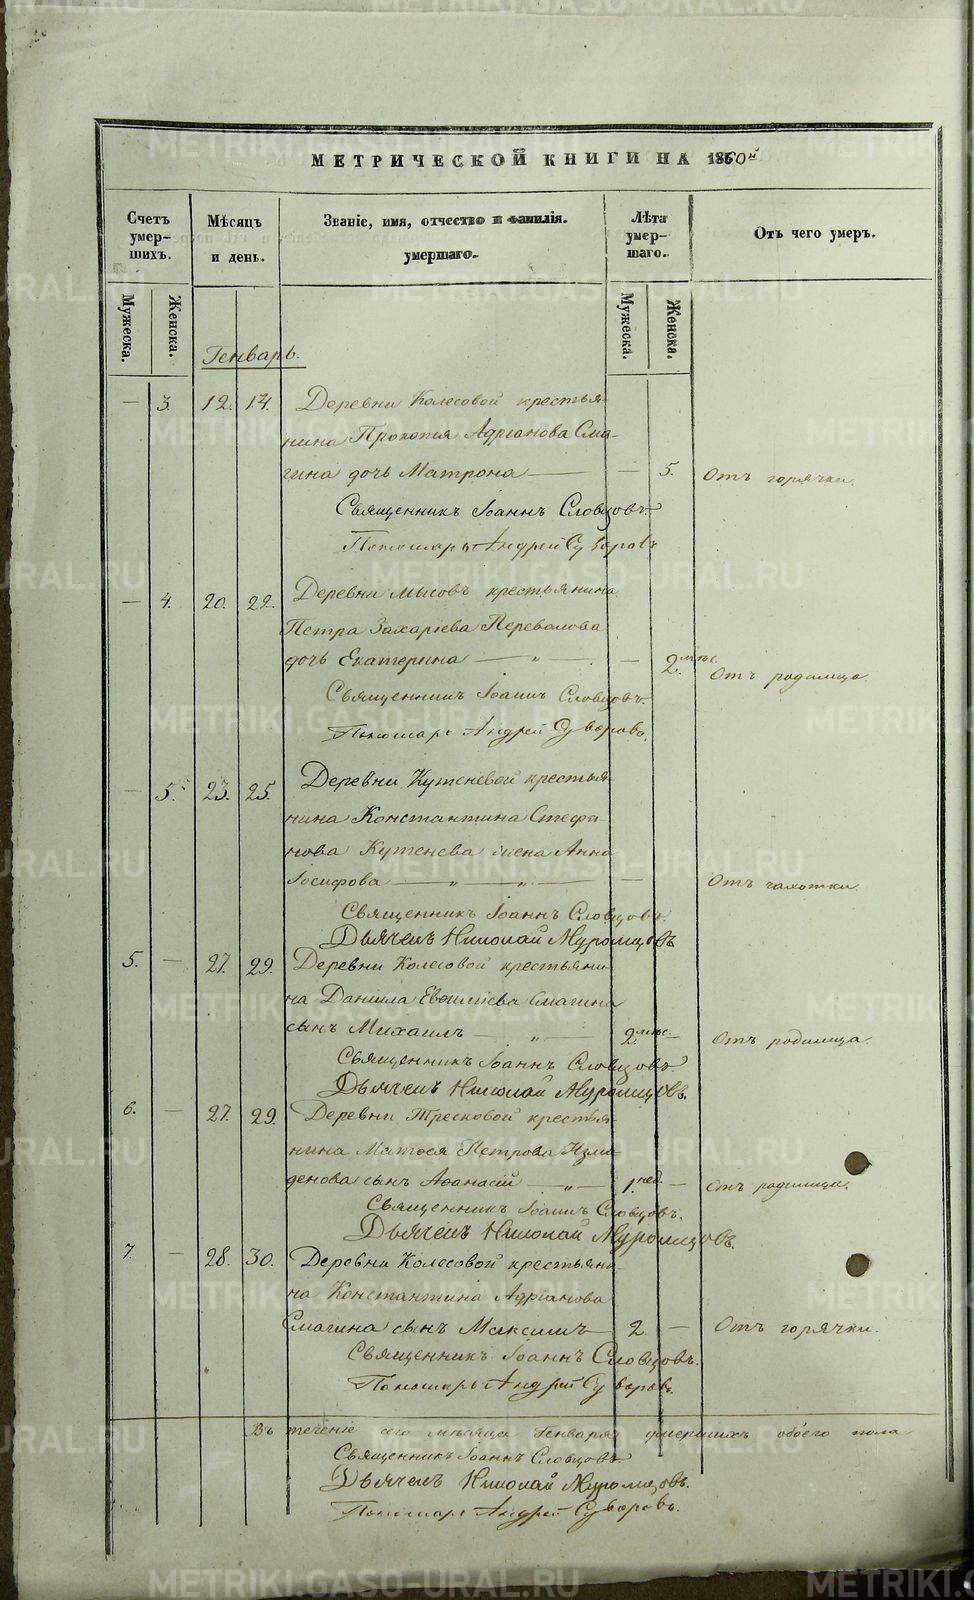 МЕТРИЧЕСКОЙ КНИГИ НА 1860й
Счетъ умер-шихъ.
Мѣсяцъ и день.
Званіе, имя, отчество и фамилія. умершаго.
Лѣта умер-шаго.
Отъ чего умеръ.
Мужеска. Женска. Мужеска. Женска.
Генварь.
— 3. 12. 14. Деревни Колесовой крестья-
нина Прокопія Адріанова Сма-
гина дочь Матрона — — 5. Отъ горячки.
Священникъ Іоаннъ Словцовъ.
Пономарь Андрей Суворовъ
— 4. 20. 22. Деревни Мысовъ крестьянина
Петра Захаріева Перевалова
дочь Екатерина — " — . — 2. мѣс. Отъ родимца
Священникъ Іоаннъ Словцовъ.
Пономарь Андрей Суворовъ.
— 5. 23. 25. Деревни Кутеневой крестья-
нина Константина Стефа-
нова Кутенева жена Анна
Іосифова — " — " — — Отъ чахотки.
Священникъ Іоаннъ Словцовъ.
Дьячекъ Николай Муромцовъ
5. — 27. 29. Деревни Колесовой крестьяни-
на Даніила Евѳиміева Смагина
сынъ Михаилъ — " — 2. мѣс. — Отъ родимца.
Священникъ Іоаннъ Словцовъ.
Дьячекъ Николай Муромцовъ.
6. — 27. 29. Деревни Тресковой крестья-
нина Матѳея Петрова Измо-
денова сынъ Аѳанасій — " — 1. нед. — Отъ родимца.
Священникъ Іоаннъ Словцовъ.
Дьячекъ Николай Муромцовъ.
7. — 28. 30. Деревни Колесовой крестьяни-
на Константина Адріанова
Смагина сынъ Максимъ — 2 — Отъ горячки.
Священникъ Іоаннъ Словцовъ.
Пономарь Андрей Суворовъ.
Въ теченіе сего мѣсяца Генваря умершихъ обоего пола
Священникъ Іоаннъ Словцовъ
Дьячекъ Николай Муромцовъ.
Пономарь Андрей Суворовъ.
METRIKI.GASO-URAL.RU